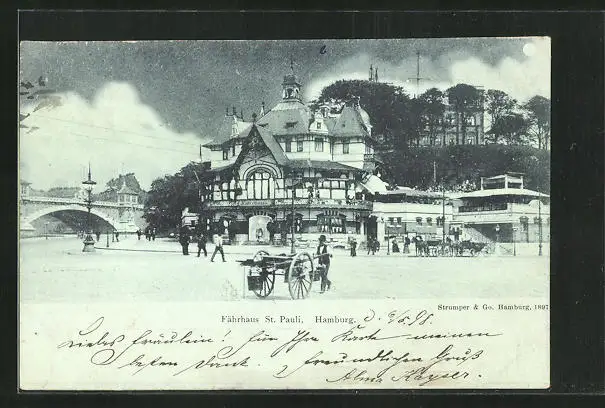 Strumper & Co. Hamburg, 1897
Fährhaus St. Pauli, Hamburg. d. 9/5. 98.
Liebes Fräulein! Für Ihre Karte meinen
besten Dank. freundlichen Gruß
Alma Kayser.